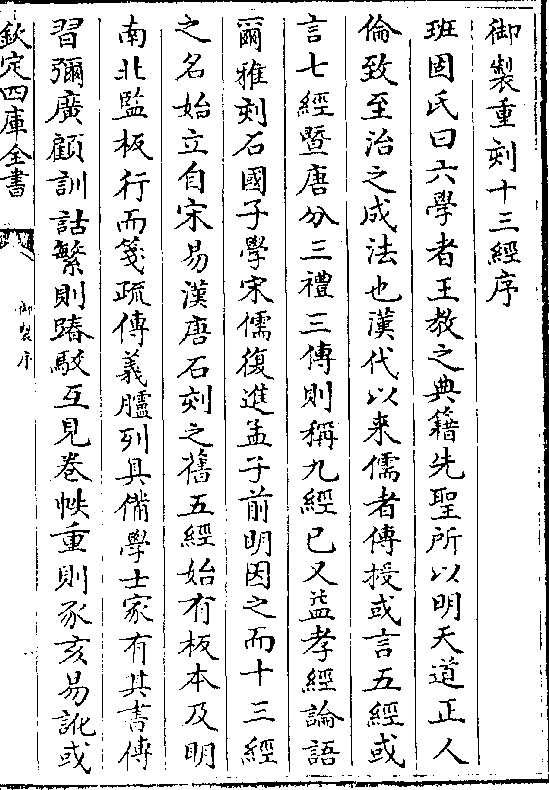 御製重刻十三經序
班固氏曰六學者王教之典籍先聖所以明天道正人
倫致至治之成法也漢代以来儒者傳授或言五經或
言七經暨唐分三禮三傳則稱九經已又益孝經論語
爾雅刻石國子學宋儒復進孟子前明因之而十三經
之名始立自宋易漢唐石刻之舊五經始有板本及明
南北監板行而箋疏傳義臚列具備學士家有其書傳
習彌廣顧訓詁繁則踳駮互見卷帙重則豕亥易訛或
欽定四庫全書
御製序